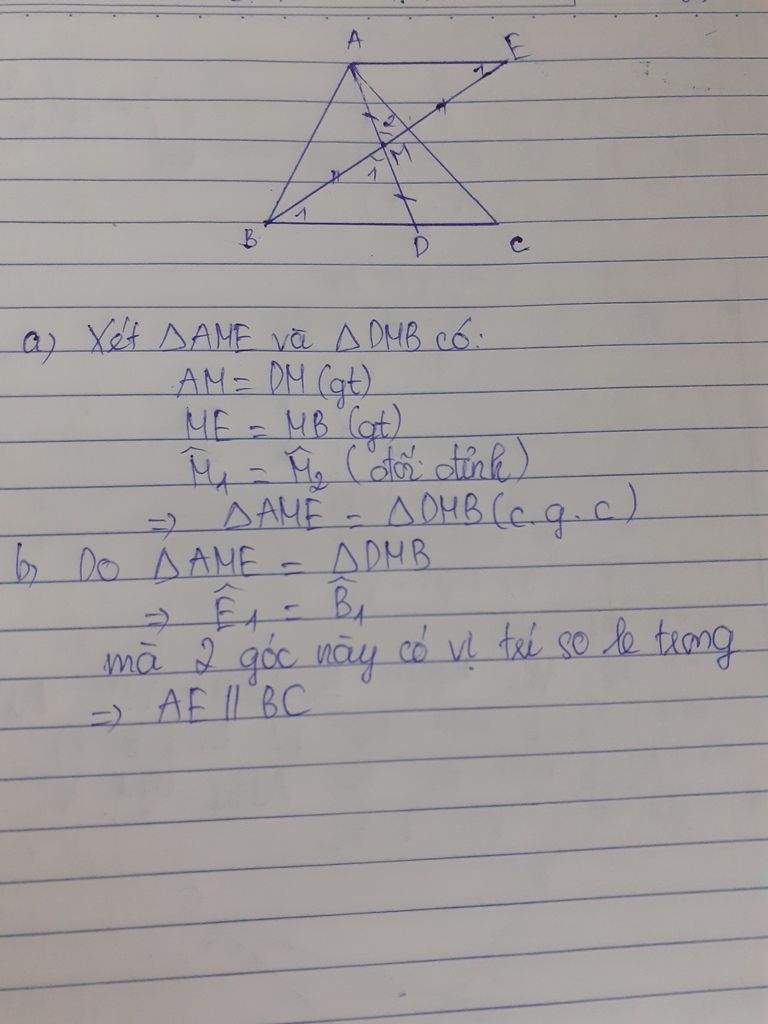 A E
1
2
M
1
1
B D C
a) Xét △AME và △DMB có:
AM = DM (gt)
ME = MB (gt)
M̂₁ = M̂₂ (đối đỉnh)
=> △AME = △DMB (c.g.c)
b) Do △AME = △DMB
=> Ê₁ = B̂₁
mà 2 góc này có vị trí so le trong
=> AE // BC